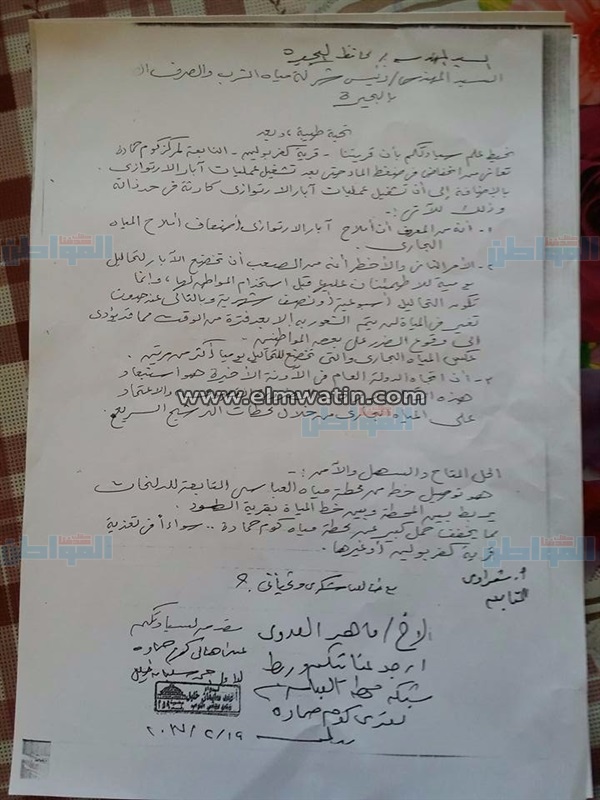 السيد المهندس / محافظ البحيرة
السيد المهندس / رئيس شركة مياه الشرب والصرف
بالبحيرة
تحية طيبة ، وبعد
نحيط علم سيادتكم بأن قريتنا - قرية كفر بولين - التابعة لمركز كوم حمادة
تعانى من انخفاض فى ضغط الماء حتى بعد تشغيل عمليات آبار الارتوازى
بالإضافة إلى أن تشغيل عمليات آبار الارتوازى كارثة فى حد ذاته
وذلك للآتى :-
١- أنه من المعروف أن أملاح آبار الارتوازى أضعاف أملاح المياه
الجارى .
٢- الأمر الثانى والأخطر أنه من الصعب أن تخضع الآبار لتحاليل
يومية للاطمئنان عليها قبل استخدام المواطن لها ، وإنما
تكون التحاليل أسبوعية أو نصف شهرية وبالتالى عند حدوث
تغير فى المياه لن يتم الشعور به إلا بعد فترة من الوقت مما قد يؤدى
إلى وقوع الضرر على بعض المواطنين .
عكس المياه الجارى والتى تخضع للتحاليل يوميا أكثر من مرتين .
٣- أن اتجاه الدولة العام فى الآونة الأخيرة هو استبعاد
هذه والاعتماد
على المياه الجارى من خلال محطات الترشيح السريع .
www.elmwatin.com
المواطن
الحل المتاح والسهل والآمن :-
هو توصيل خط من محطة مياه العباسى التابعة للدلنجات
يربط بين المحطة وبين خط المياه بقرية الطود .
مما يخفف حمل كبير عن محطة مياه كوم حمادة .. سواء فى تغذية
قرية كفر بولين أو غيرها .
مع خالص شكرى وتحياتى
أ. شعراوى
للمتابعة
مقدمه لسيادتكم
عن أهالى كوم حمادة
الأخ / ماهر العدوى
أرجو
شبكة
كوم حمادة
٢٠١٧/٢/١٩